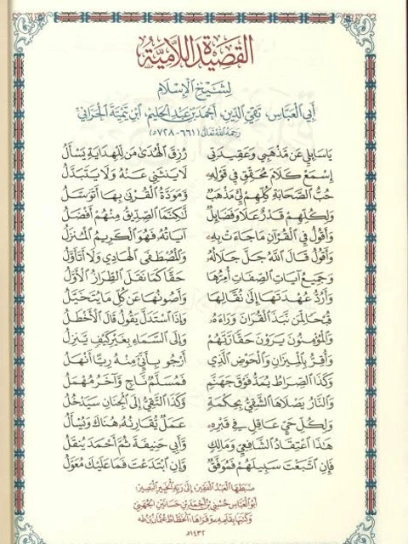 القصيدة اللامية
لشيخ الإسلام
أبي العباس، تقي الدين، أحمد بن عبد الحليم، ابن تيمية الحراني
رحمه الله تعالى (٦٦١-٧٢٨هـ)
يَا سَائِلِي عَنْ مَذْهَبِي وَعَقِيدَتِي رُزِقَ الْهُدَى مَنْ لِلْهِدَايَةِ يَسْأَلُ
إِسْمَعْ كَلَامَ مُحَقِّقٍ فِي قَوْلِهِ لَا يَنْثَنِي عَنْهُ وَلَا يَتَبَدَّلُ
حُبُّ الصَّحَابَةِ كُلِّهِمْ لِي مَذْهَبٌ وَمَوَدَّةُ الْقُرْبَى بِهَا أَتَوَسَّلُ
وَلِكُلِّهِمْ قَدْرٌ عَلَا وَفَضَائِلٌ لَكِنَّمَا الصِّدِّيقُ مِنْهُمْ أَفْضَلُ
وَأَقُولُ فِي الْقُرْآنِ مَا جَاءَتْ بِهِ آيَاتُهُ فَهْوَ الْكَرِيمُ الْمُنْزَلُ
وَأَقُولُ قَالَ اللهُ جَلَّ جَلَالُهُ وَالْمُصْطَفَى الْهَادِي وَلَا أَتَأَوَّلُ
وَجَمِيعُ آيَاتِ الصِّفَاتِ أُمِرُّهَا حَقًّا كَمَا نَقَلَ الطِّرَازُ الْأَوَّلُ
وَأَرُدُّ عُهْدَتَهَا إِلَى نُقَّالِهَا وَأَصُونُهَا عَنْ كُلِّ مَا يُتَخَيَّلُ
قُبْحًا لِمَنْ نَبَذَ الْقُرَانَ وَرَاءَهُ وَإِذَا اسْتَدَلَّ يَقُولُ قَالَ الْأَخْطَلُ
وَالْمُؤْمِنُونَ يَرَوْنَ حَقًّا رَبَّهُمْ وَإِلَى السَّمَاءِ بِغَيْرِ كَيْفٍ يَنْزِلُ
وَأُقِرُّ بِالْمِيزَانِ وَالْحَوْضِ الَّذِي أَرْجُو بِأَنِّي مِنْهُ رِيًّا أَنْهَلُ
وَكَذَا الصِّرَاطُ يُمَدُّ فَوْقَ جَهَنَّمَ فَمُسَلَّمٌ نَاجٍ وَآخَرُ مُهْمَلُ
وَالنَّارُ يَصْلَاهَا الشَّقِيُّ بِحِكْمَةٍ وَكَذَا التَّقِيُّ إِلَى الْجِنَانِ سَيَدْخُلُ
وَلِكُلِّ حَيٍّ عَاقِلٍ فِي قَبْرِهِ عَمَلٌ يُقَارِنُهُ هُنَاكَ وَيُسْأَلُ
هَذَا اعْتِقَادُ الشَّافِعِيِّ وَمَالِكٍ وَأَبِي حَنِيفَةَ ثُمَّ أَحْمَدَ يُنْقَلُ
فَإِنِ اتَّبَعْتَ سَبِيلَهُمْ فَمُوَفَّقٌ وَإِنِ ابْتَدَعْتَ فَمَا عَلَيْكَ مُعَوَّلُ
ضبطها العبد الفقير إلى ربه
أبو العباس
وكتبها بقلمه الخطاط عثمان طه
١٤٣٢هـ